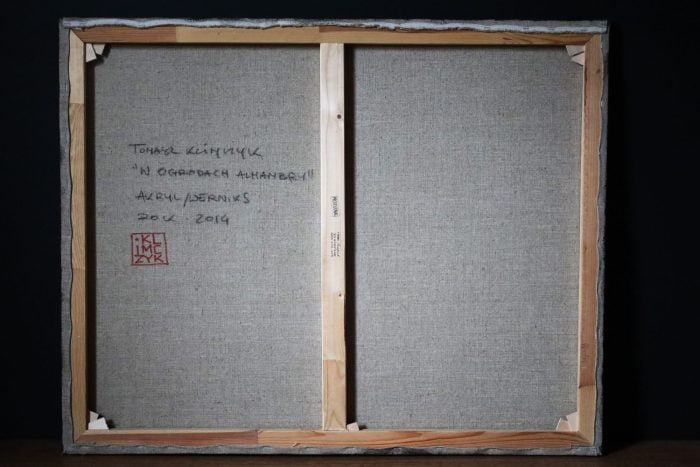 TOMASZ KLIMCZYK
"W OGRODACH ALHAMBRY"
AKRYL/WERNIKS
ROK . 2014
KL
IMC
ZYK